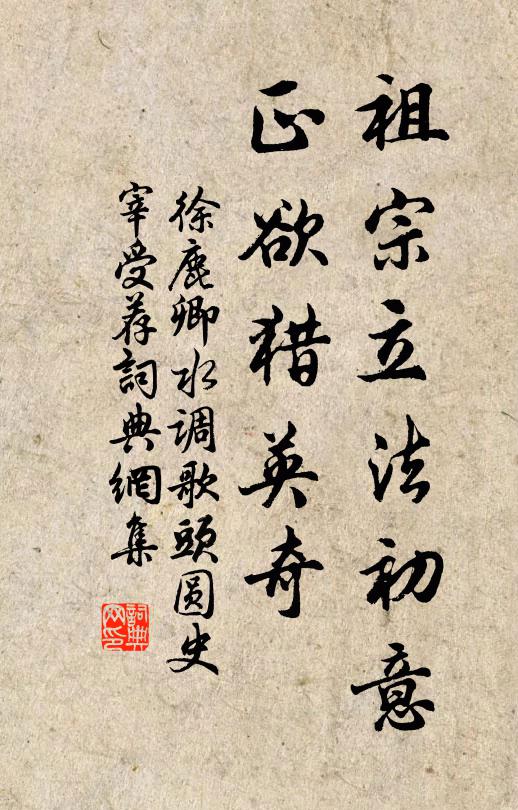 祖宗立法初意
正欲猎英奇
徐鹿卿水调歌頭圆史
宰受荐詞典網集
詞典网印